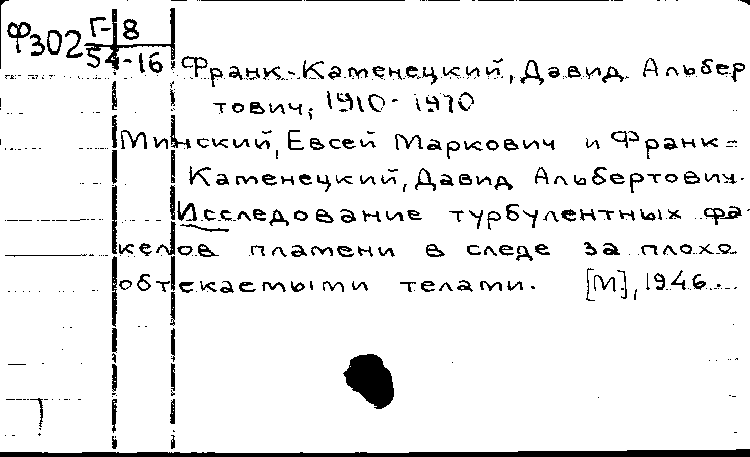 Ф302 Г-8
54-16
Франк-Каменецкий, Давид Альбер
тович, 1910-1970
Минский, Евсей Маркович и Франк=
Каменецкий, Давид Альбертович.
Исследование турбулентных фа-
келов пламени в следе за плохо
обтекаемыми телами. [М], 1946.